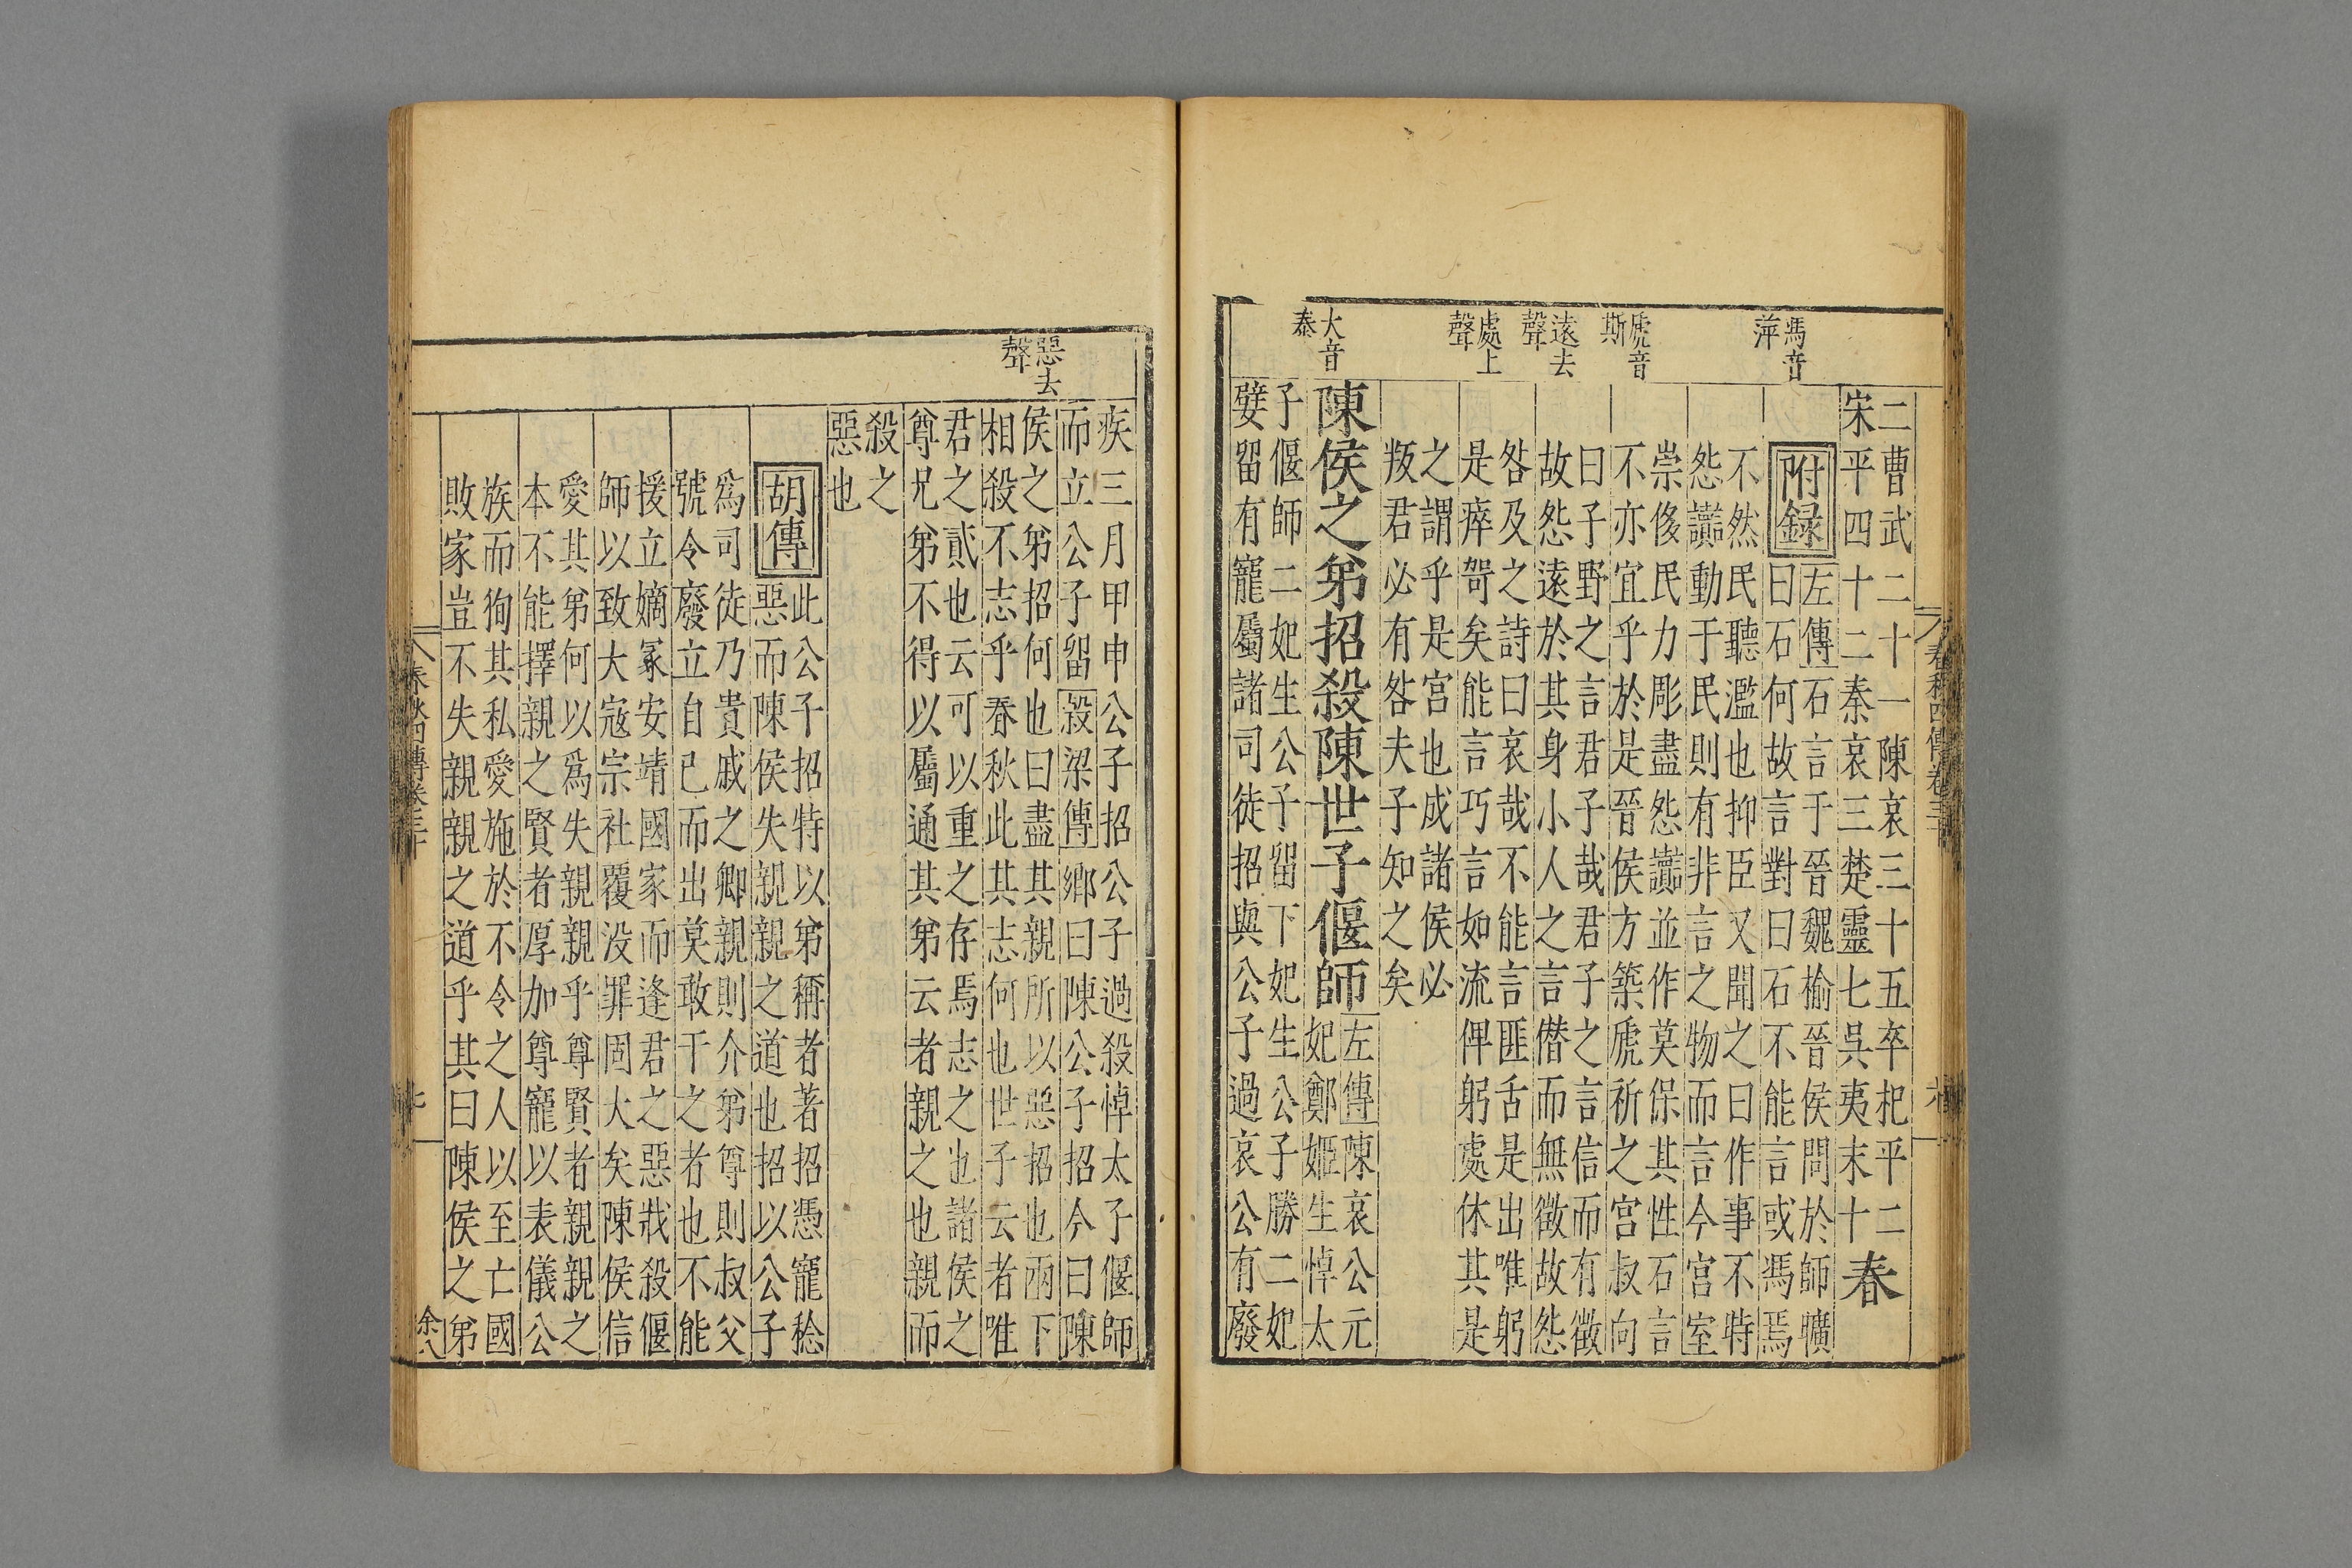 二曹武二十一陳哀三十五卒杞平二
宋平四十二秦哀三楚靈七吳夷末十
春
附録
左傳石言于晉魏榆晉侯問於師曠
曰石何故言對曰石不能言或馮焉
不然民聽濫也抑臣又聞之曰作事不時
怨讟動于民則有非言之物而言今宮室
崇侈民力彫盡怨讟並作莫保其性石言
不亦宜乎於是晉侯方築虒祈之宮叔向
曰子野之言君子哉君子之言信而有徵
故怨遠於其身小人之言僭而無徵故怨
咎及之詩曰哀哉不能言匪舌是出唯躬
是瘁哿矣能言巧言如流俾躬處休其是
之謂乎是宮也成諸侯必
叛君必有咎夫子知之矣
陳侯之弟招殺陳世子偃師
左傳陳哀公元
妃鄭姬生悼太
子偃師二妃生公子留下妃生公子勝二妃
嬖留有寵屬諸司徒招與公子過哀公有廢
馮音萍
虒音斯
遠去聲
處上聲
大音泰
春秋四傳卷三十
疾三月甲申公子招公子過殺悼太子偃師
而立公子留穀梁傳鄉曰陳公子招今曰陳
侯之弟招何也曰盡其親所以惡招也兩下
相殺不志乎春秋此其志何也世子云者唯
君之貳也云可以重之存焉志之也諸侯之
尊兄弟不得以屬通其弟云者親之也親而
殺之
惡也
胡傳
此公子招特以弟稱者著招憑寵稔
惡而陳侯失親親之道也招以公子
爲司徒乃貴戚之卿親則介弟尊則叔父
號令廢立自己而出莫敢干之者也不能
援立嫡冢安靖國家而逢君之惡戕殺偃
師以致大寇宗社覆没罪固大矣陳侯信
愛其弟何以爲失親親乎尊賢者親親之
本不能擇親之賢者厚加尊寵以表儀公
族而徇其私愛施於不令之人以至亡國
敗家豈不失親親之道乎其曰陳侯之弟
惡去聲
春秋四傳卷三十
七
余八